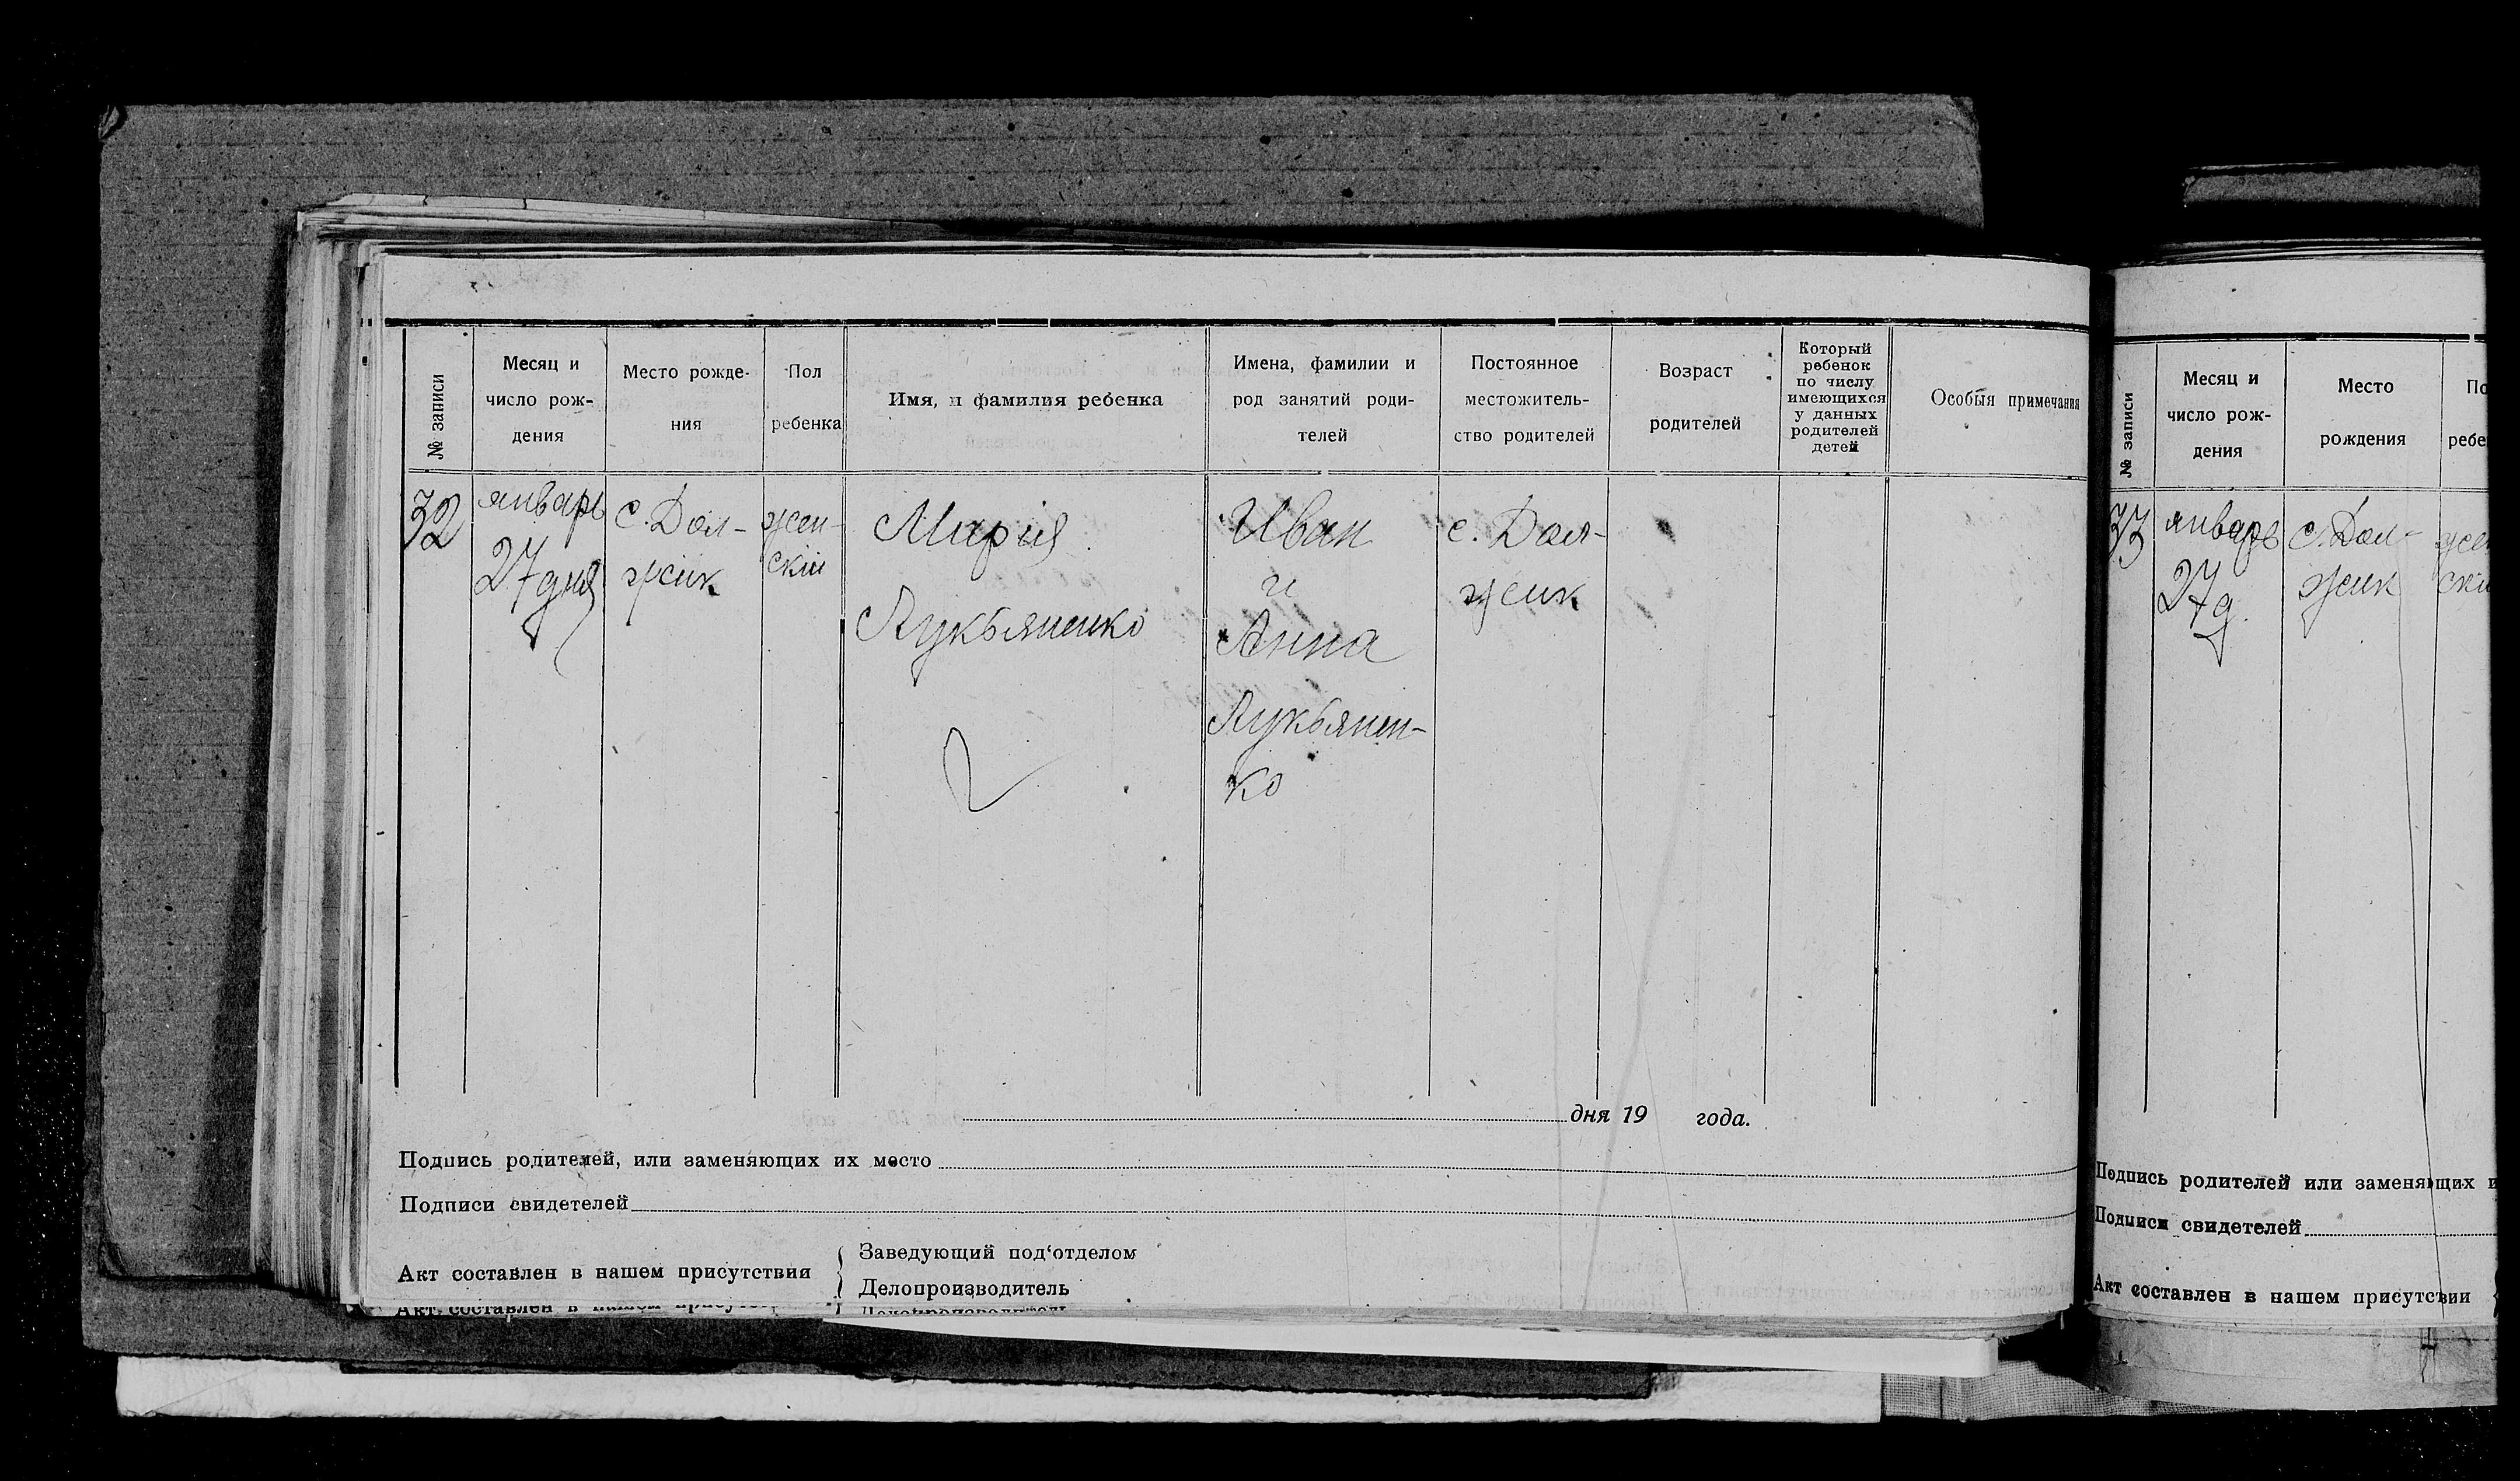 № записи
Месяц и
число рож-
дения
Место рожде-
ния
Пол
ребенка
Имя, и фамилия ребенка
Имена, фамилии и
род занятий роди-
телей
Постоянное
местожитель-
ство родителей
Возраст
родителей
Который
ребенок
по числу
имеющихся
у данных
родителей
детей
Особыя примечания
32
январь
27 дня
с. Дол-
жик
жен-
скiй
Марiя
Лукьяненко
Иван
и
Анна
Лукьянен-
ко
с. Дол-
жик
дня 19 года.
Подпись родителей, или заменяющих их место
Подписи свидетелей
Акт составлен в нашем присутствии
Заведующий под'отделом
Делопроизводитель
Акт составлен в нашем
Делопроизводитель
№ записи
Месяц и
число рож-
дения
Место
рождения
По
ребе
33
январь
27 д.
с. Дол-
жик
жен
скi
Подпись родителей или заменяющих и
Подписи свидетелей
Акт составлен в нашем присутствии